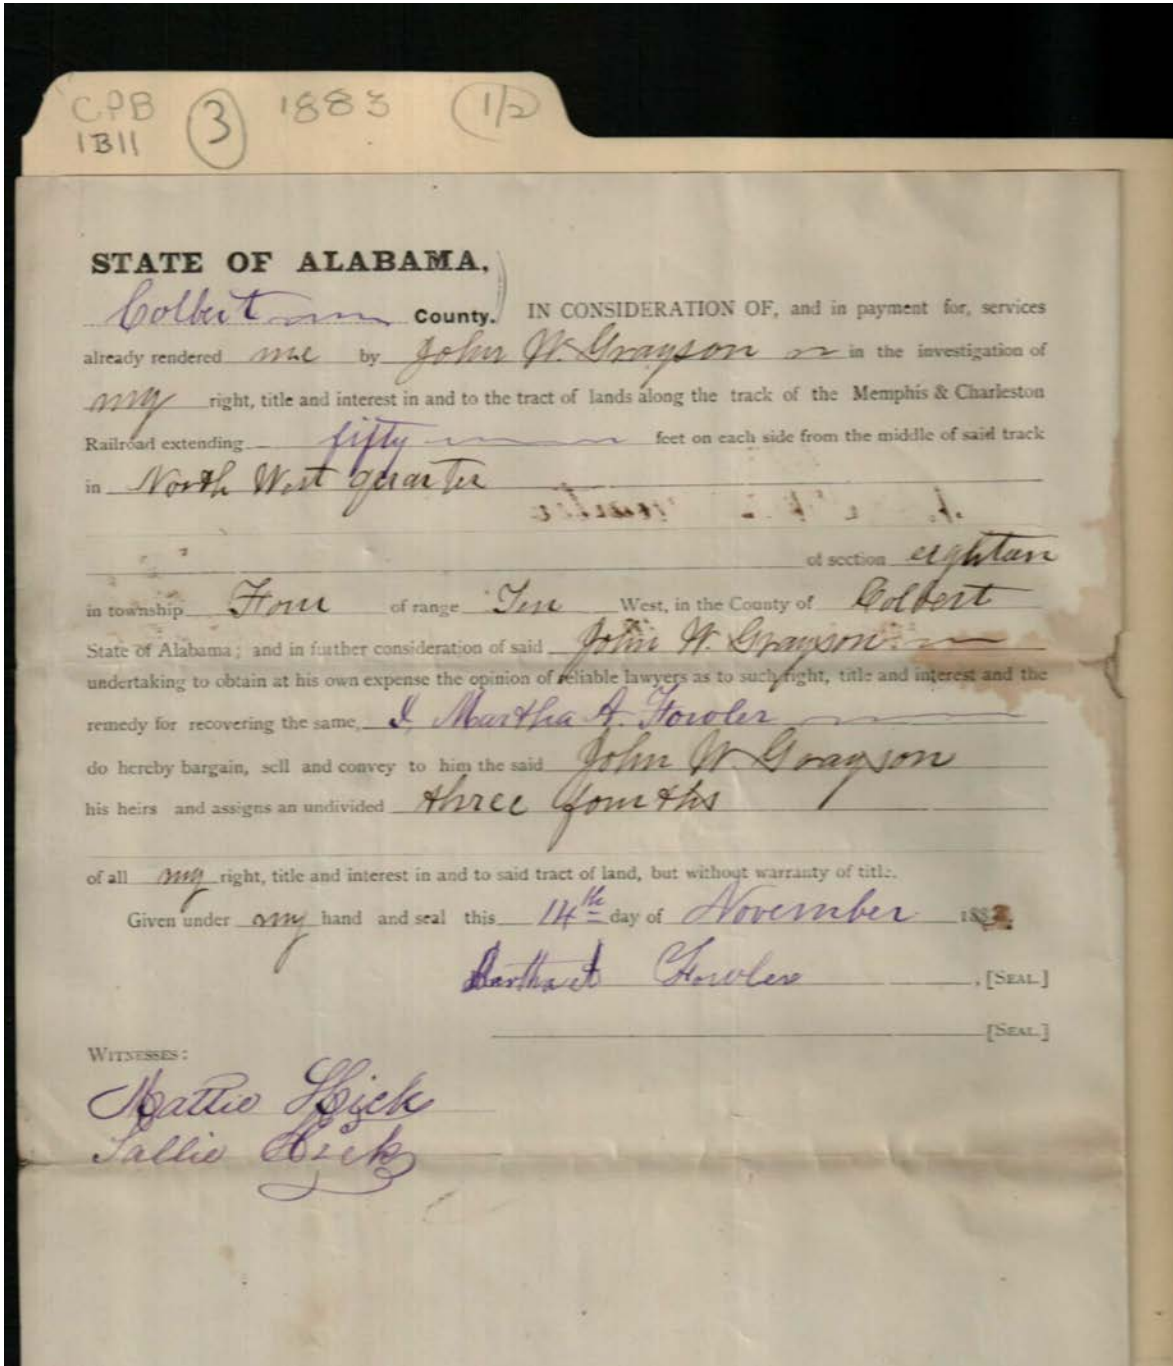 CPB 3 1883 1/2
1B11
STATE OF ALABAMA,
Colbert County. IN CONSIDERATION OF, and in payment for, services
already rendered me by John W. Grayson in the investigation of
my right, title and interest in and to the tract of lands along the track of the Memphis & Charleston
Railroad extending fifty feet on each side from the middle of said track
in North West quarter
of section eighteen
in township Four of range Ten West, in the County of Colbert
State of Alabama; and in further consideration of said John W. Grayson
undertaking to obtain at his own expense the opinion of reliable lawyers as to such right, title and interest and the
remedy for recovering the same, I Martha A. Fowler
do hereby bargain, sell and convey to him the said John W. Grayson
his heirs and assigns an undivided three fourths
of all my right, title and interest in and to said tract of land, but without warranty of title.
Given under my hand and seal this 14th day of November 188
Martha A Fowler, [SEAL.]
[SEAL.]
WITNESSES:
Mattie Hick
Sallie Hick